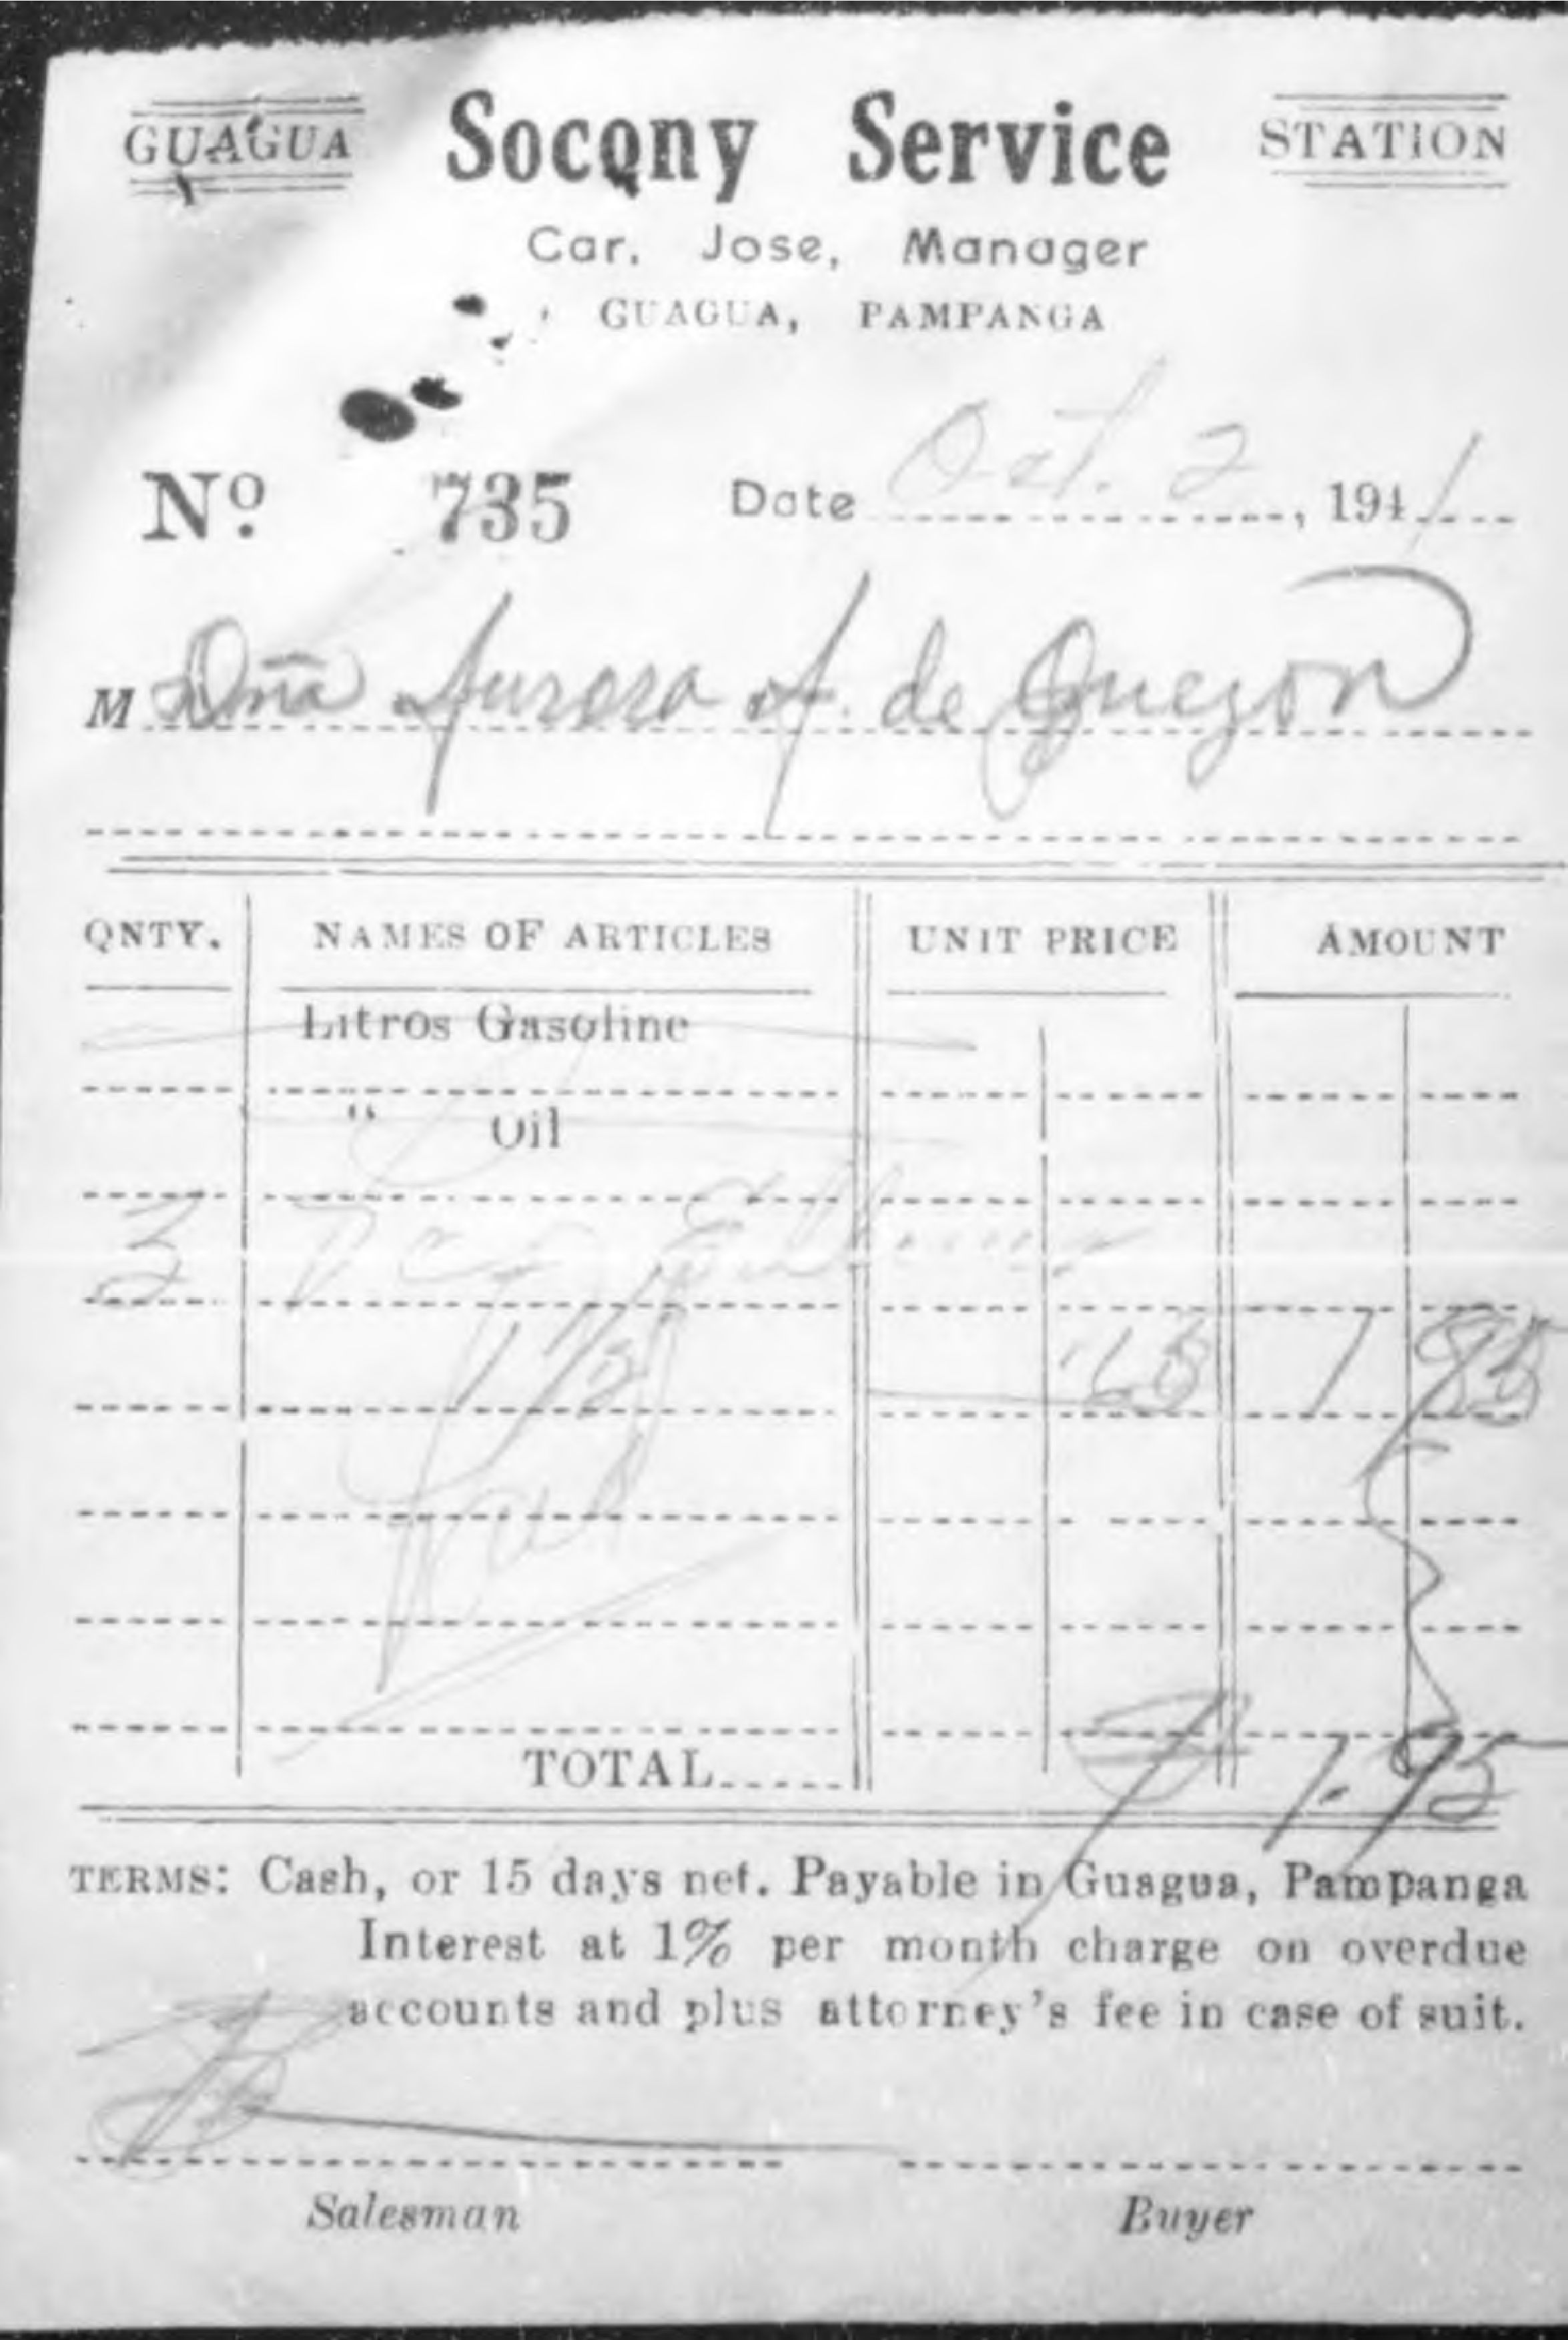 GUAGUA Socony Service STATION
Car. Jose, Manager
GUAGUA, PAMPANGA
Nº 735 Date Oct. 2, 1941
M Dña Aurora A. de Quezon
QNTY. NAMES OF ARTICLES UNIT PRICE AMOUNT
Litros Gasoline
" Oil
3
1 1/2 1
TOTAL 1.95
TERMS: Cash, or 15 days net. Payable in Guagua, Pampanga
Interest at 1% per month charge on overdue
accounts and plus attorney's fee in case of suit.
Salesman Buyer